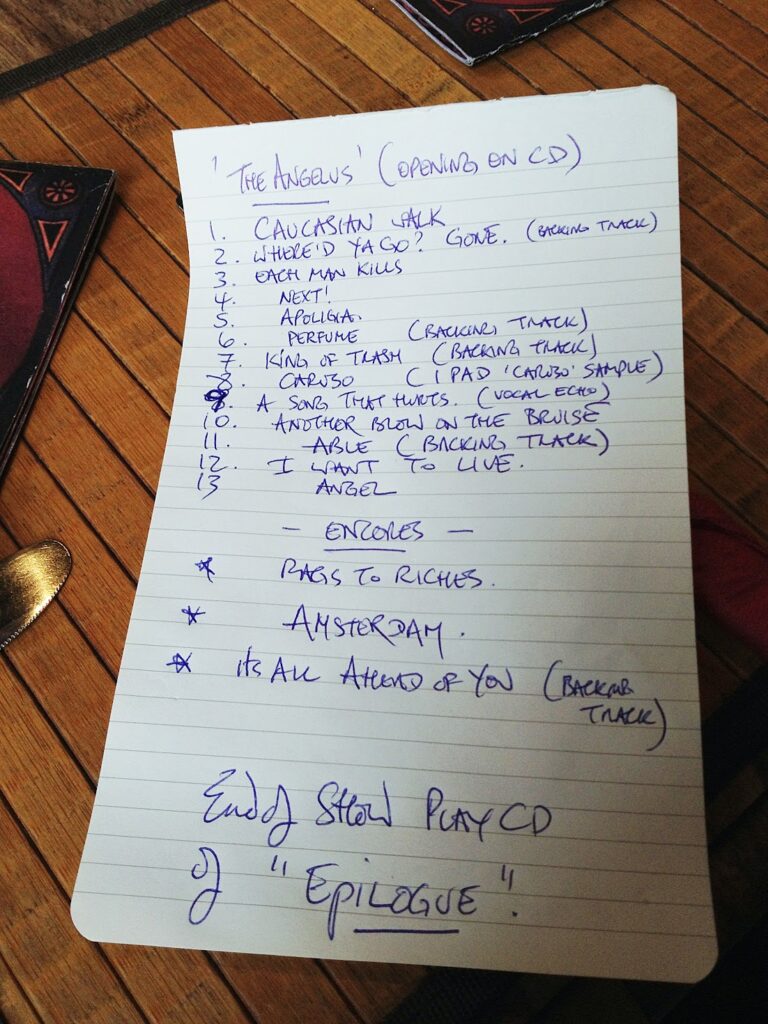 'THE ANGELUS' (OPENING ON CD)
1. CAUCASIAN WALK
2. WHERE'D YA GO? GONE. (BACKING TRACK)
3. EACH MAN KILLS
4. NEXT!
5. APOLIGIA.
6. PERFUME (BACKING TRACK)
7. KING OF TRASH (BACKING TRACK)
8. CARUSO (IPAD 'CARUSO' SAMPLE)
9. A SONG THAT HURTS. (VOCAL ECHO)
10. ANOTHER BLOW ON THE BRUISE
11. ABLE (BACKING TRACK)
12. I WANT TO LIVE.
13 ANGEL
- ENCORES -
* RAGS TO RICHES.
* AMSTERDAM.
* ITS ALL AHEAD OF YOU (BACKING
TRACK)
End of SHOW PLAY CD
of "EpiLOGUE".